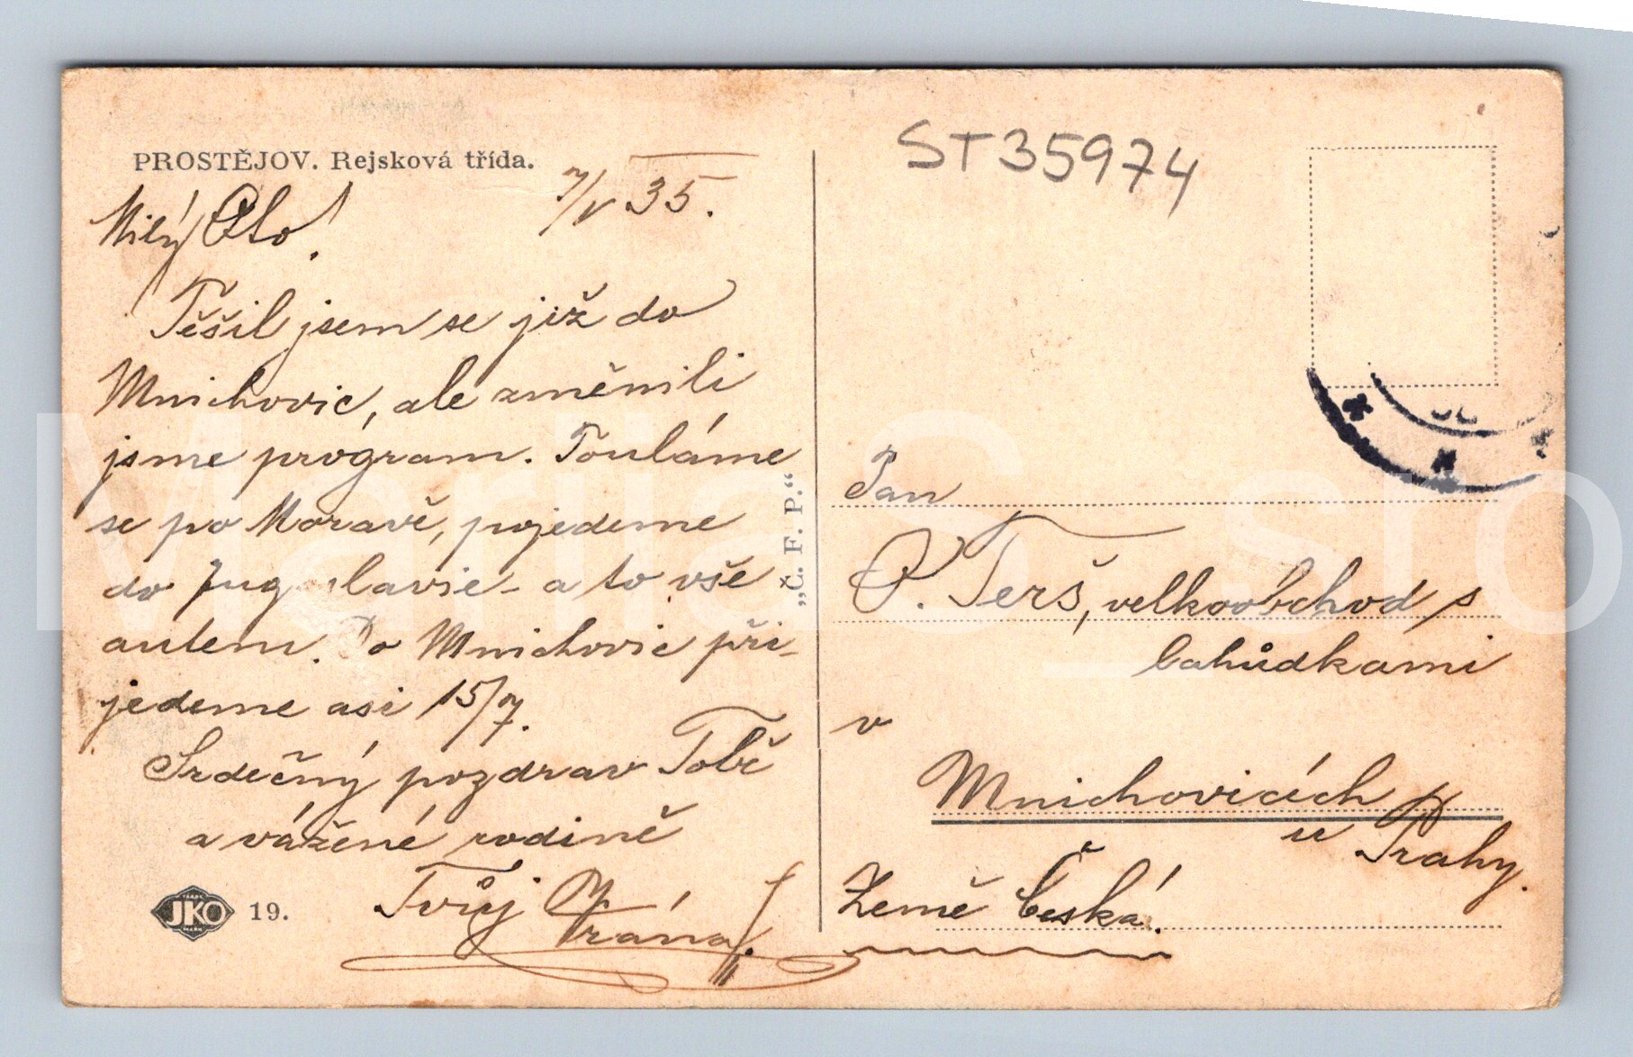 PROSTĚJOV. Rejsková třída.
7/V 35.
Milý Oto!
Těšil jsem se již do
Mnichovic, ale změnili
jsme program. Touláme
se po Moravě, pojedeme
do Jugoslavie - a to vše
autem. Do Mnichovic při-
jedeme asi 15/7.
Srdečný pozdrav Tobě
a vážené rodině
Tvůj
JKO 19.
„Č. F. P.“
ST35974
Pan
O. Terš, velkoobchod s
lahůdkami
v
Mnichovicích
u Prahy.
Země Česká!